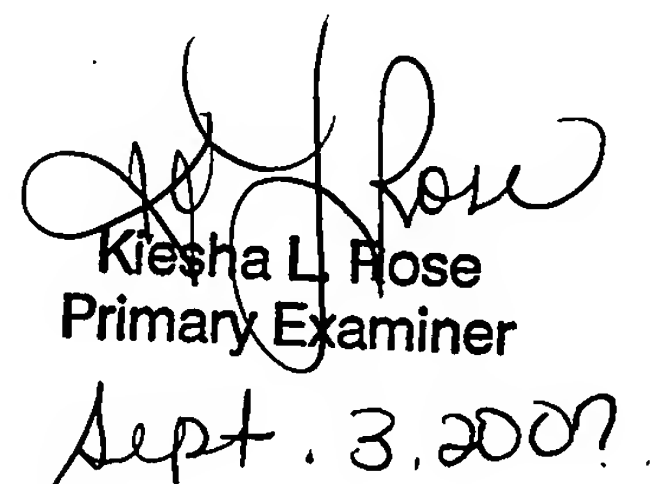 Rose
Kiesha L. Rose
Primary Examiner
Sept. 3, 2007.